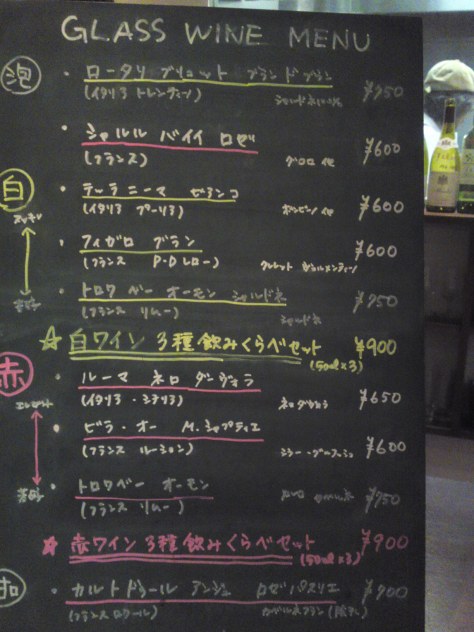 GLASS WINE MENU
泡
・ロータリ ブリュット ブラン ド ブラン
(イタリア トレンティーノ) ¥950
・シャルル バイイ ロゼ
(フランス) グロロ 他 ¥600
白
・テッラ ニーマ ビアンコ
(イタリア プーリア) 他 ¥600
・フィガロ ブラン
(フランス P・D レロー) クレレット ヴェルメンティーノ ¥600
・トロワ ベー オーモン シャルドネ
(フランス リムー) シャルドネ ¥950
☆白ワイン 3種飲みくらべセット ¥900
(50ml×3)
赤
・ルーマ ネロ ダーヴォラ
(イタリア・シチリア) ネロダヴォラ ¥650
・ビラ・オー M.シャプティエ
(フランス ルーション) シラー・グルナッシュ ¥600
・トロワ ベー オーモン
(フランス リムー) ¥750
☆赤ワイン 3種飲みくらべセット ¥900
(50ml×3)
・カルト ドゥール アンジュ ロゼ
(フランス ロワール) カベルネフラン ¥900